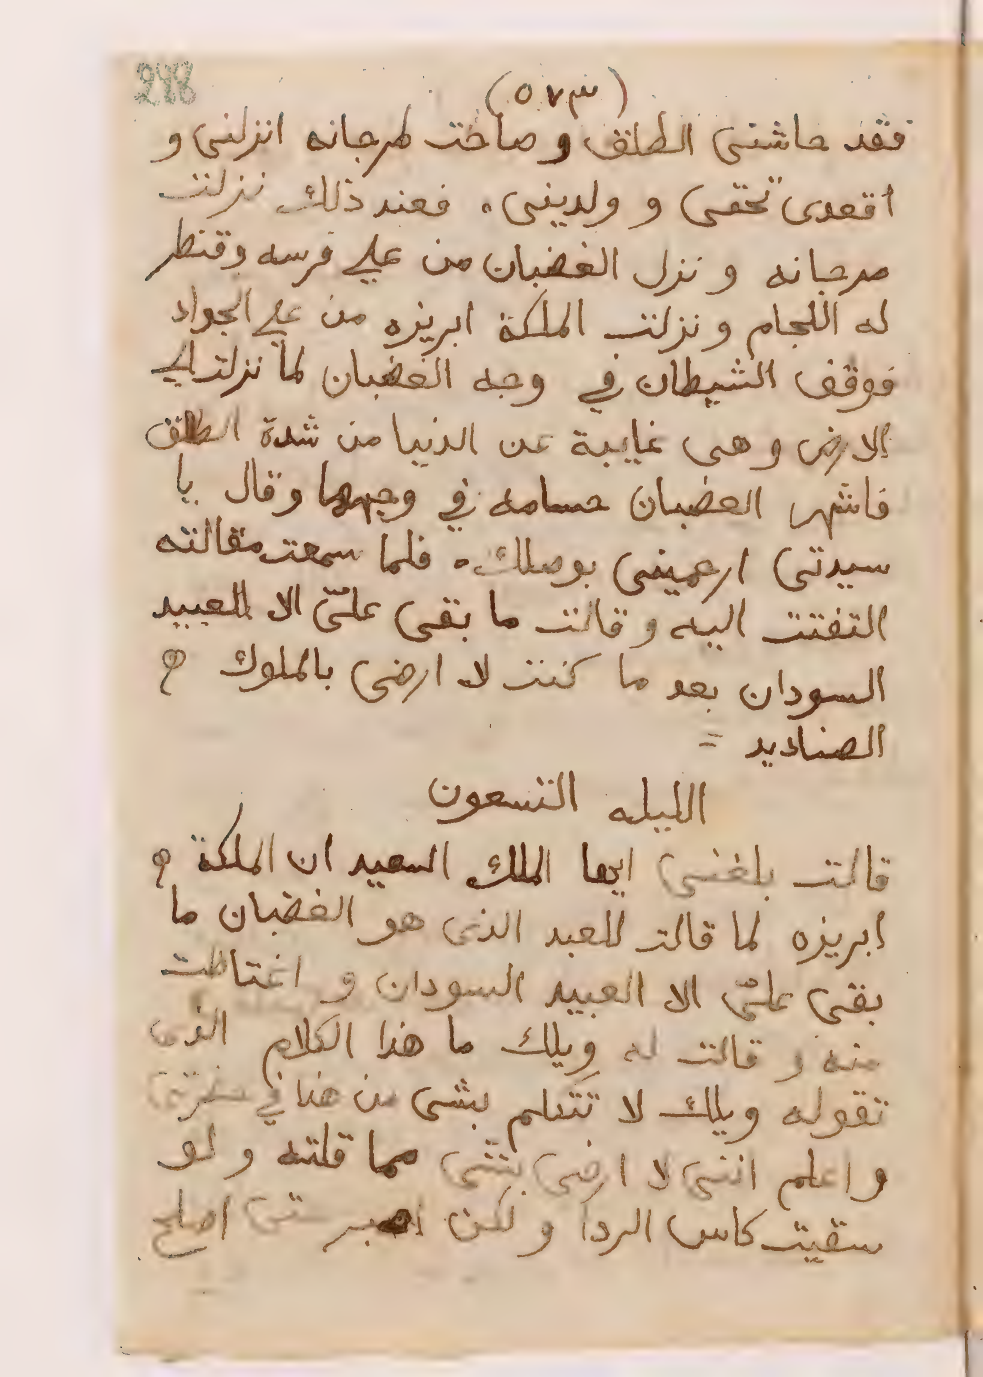 248
(٥٧٣)
فقد حاشنى الطلق و صاحت لمرجانه انزلنى و
اقعدى تحتى و ولدينى . فعند ذلك نزلت
مرجانه و نزل الغضبان من على فرسه وقنطر
له اللجام و نزلت الملكة ابريزه من على الجواد
فوقف الشيطان في وجه الغضبان لما نزلت الي
الارض و هى غايبة عن الدنيا من شدة الطلق
فاشهر الغضبان حسامه في وجهها وقال يا
سيدتى ارحمينى بوصلك . فلما سمعت مقالته
التفتت اليه و قالت ما بقى علىّ الا العبيد
السودان بعد ما كنت لا ارضى بالملوك
الصناديد =
الليله التسعون
قالت بلغنى ايها الملك السعيد ان الملكة
ابريزه لما قالت للعبد الذى هو الغضبان ما
بقى علىّ الا العبيد السودان و اغتاظت
منه و قالت له ويلك ما هذا الكلام الذى
تقوله ويلك لا تتكلم بشى من هذا في حضرتى
و اعلم اننى لا ارضى بشى مما قلته و لو
سقيت كاس الردا و لكن اصبر حتى اصلح